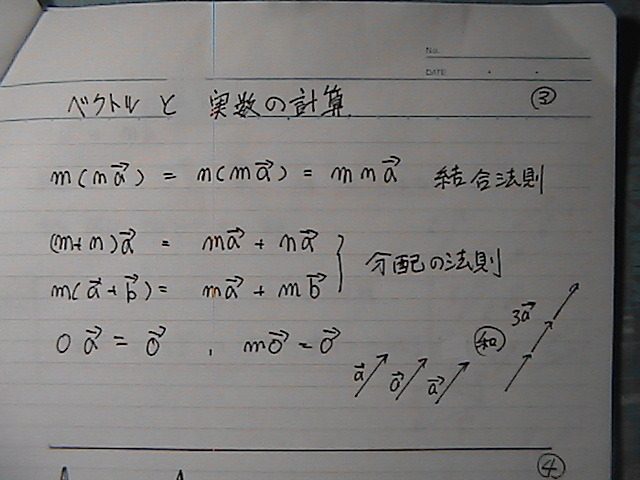 No.
DATE
ベクトルと 実数の計算. ③
m(n\vec{a}) = n(m\vec{a}) = mn\vec{a} 結合法則
(m+n)\vec{a} = m\vec{a} + n\vec{a}
分配の法則
m(\vec{a}+\vec{b}) = m\vec{a} + m\vec{b}
0\vec{a} = \vec{0} , m\vec{0} = \vec{0}
和 3\vec{a}
\vec{a} \vec{a} \vec{a}
④